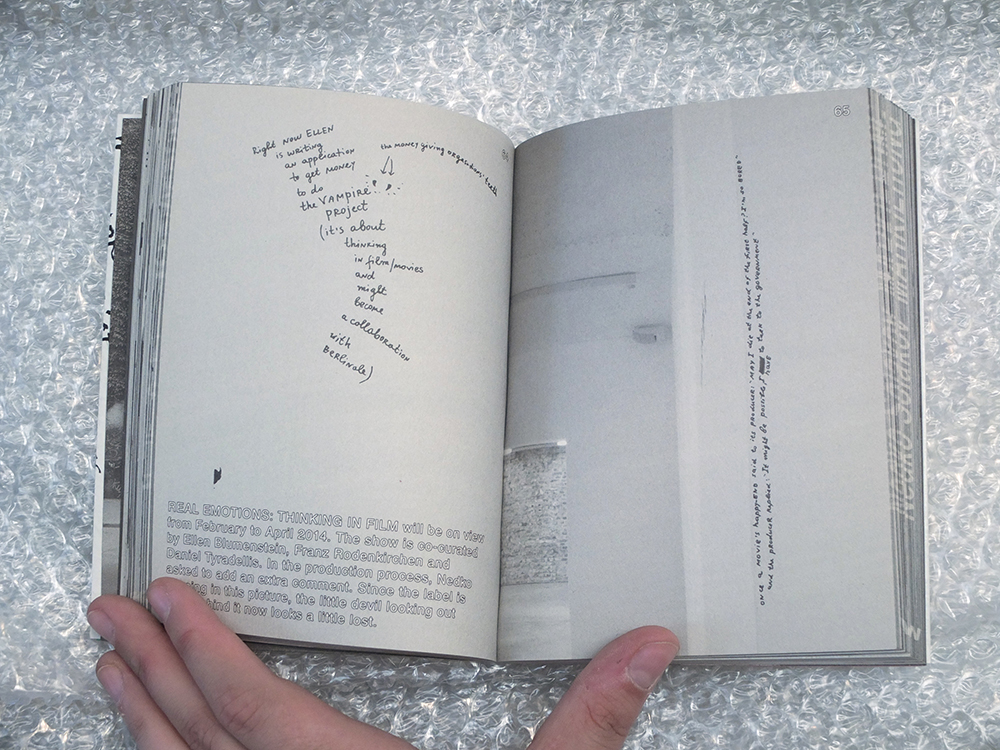 Right NOW ELLEN
is writing
an application
to get MONEY
to do
the VAMPIRE
PROJECT
(it's about
thinking
in film/movies
and
might
become
a collaboration
with
BERLINALE)
the money giving organizations' teeth
REAL EMOTIONS: THINKING IN FILM will be on view
from February to April 2014. The show is co-curated
by Ellen Blumenstein, Franz Rodenkirchen and
Daniel Tyradellis. In the production process, Nedko
asked to add an extra comment. Since the label is
in this picture, the little devil looking out
it now looks a little lost.
65
ONCE a MOVIE'S happy-END said to its PRODUCER: "MAY I die at the end of the first half? I'm so BORED"
and the producer replied: "It might be possible, I have to talk to the GOVERNMENT"